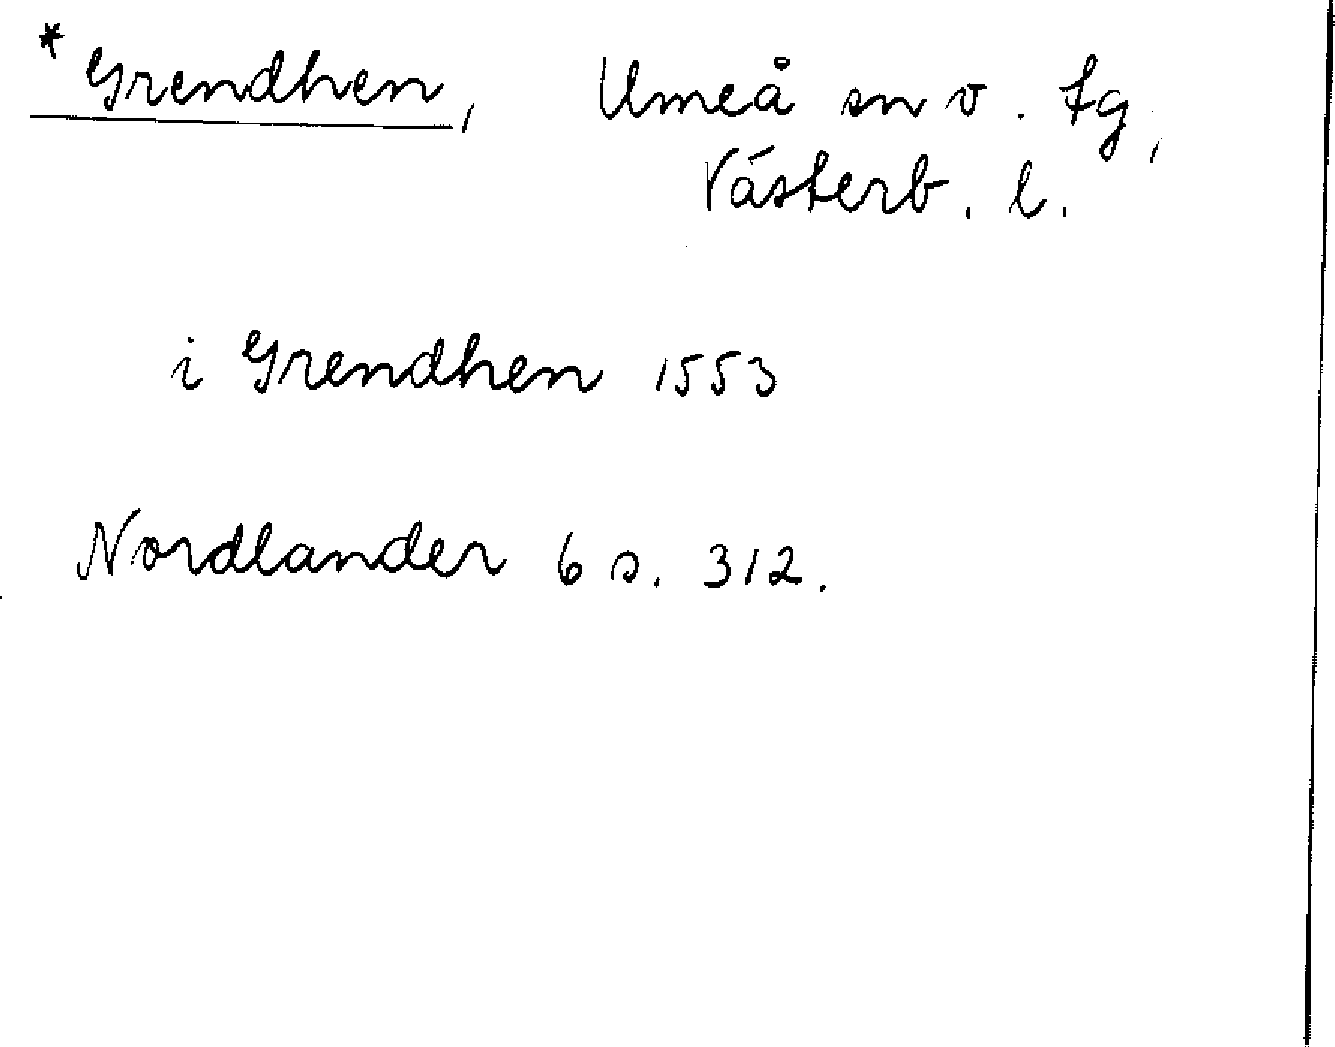 * Grendhen, Umeå sn o. tg,
Västerb. l.
i Grendhen 1553
Nordlander 6 s. 312.